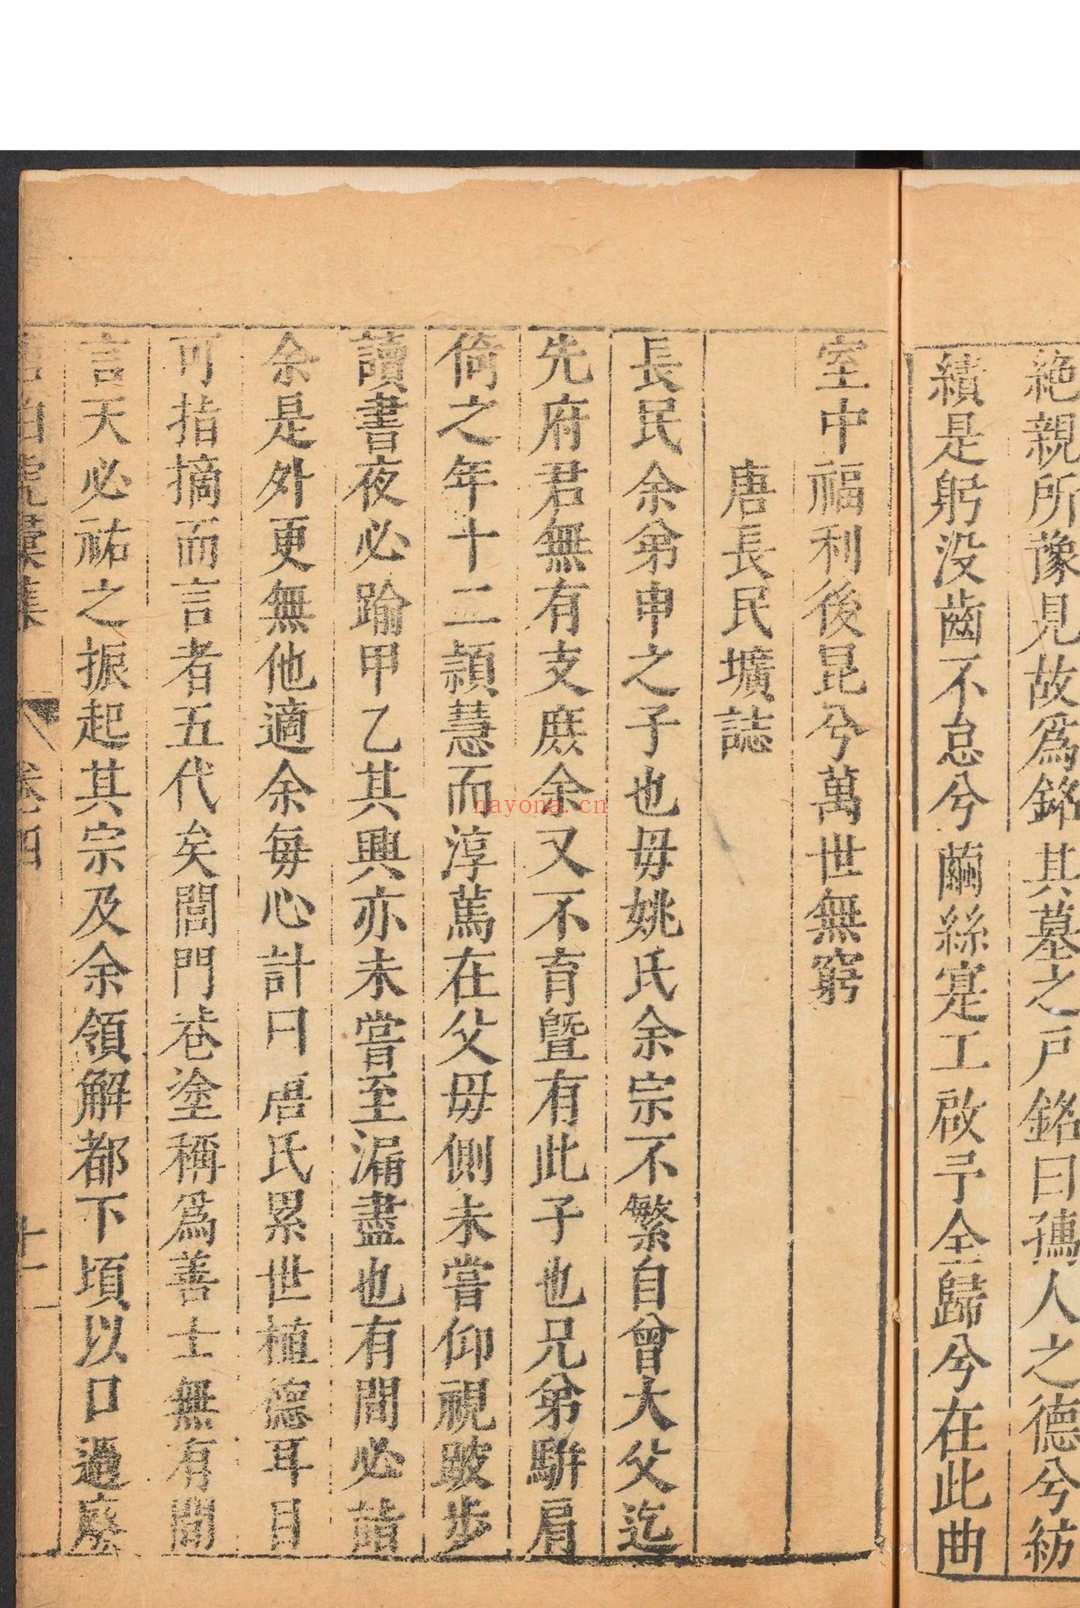 絶親所豫見故爲銘其墓之戸銘曰孺人之德兮紡
績是躬没齒不怠兮繭絲寔工啟予全歸兮在此曲
室中福利後昆兮萬世無窮
唐長民壙誌
長民余弟申之子也毋姚氏余宗不繁自曾大父迄
先府君無有支庶余又不育曁有此子也兄弟駢肩
倚之年十二頴慧而淳萬在父毋側未嘗仰視跛步
讀書夜必踰甲乙其興亦未嘗至漏盡也有間必請
余是外更無他適余毎心計曰唐氏累世植德耳目
可指摘而言者五代矣閭門巷塗稱爲善士無有間
言天必祐之振起其宗及余領解都下頃以口過廢
唐伯虎彙集 卷四 十一
nayona.cn